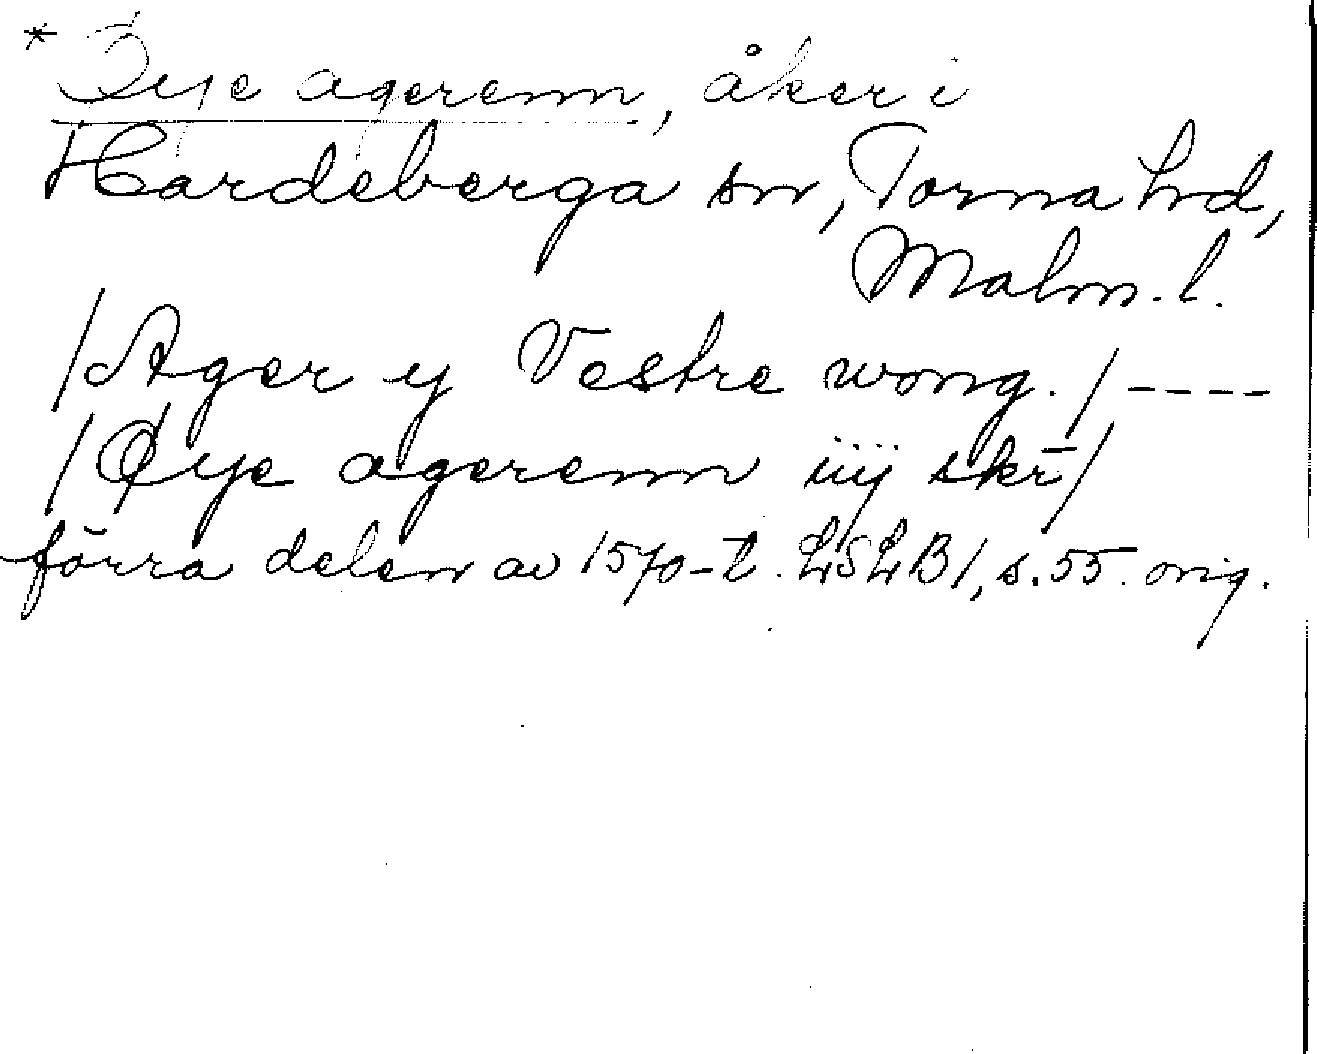 * Öÿe agerenn, åker i
Hardeberga sn, Torna hrd,
Malm. l.
/Ager y Vestre wong./----
/Øye agerenn iiij skr̄/
förra delen av 1570-t. LSLB1, s. 55. orig.